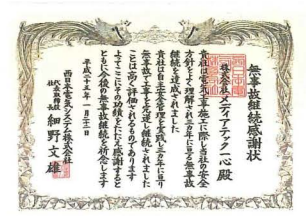 無事故継続感謝状
株式会社メディアテック一心 殿
貴社は電気工事施工に際し当社の安全
方針をよく理解され三カ年に亘る無事故
継続を達成されました
貴社は自主安全管理を実践し三カ年に亘り
無事故で工事を完遂し継続されました
ことは高く評価されるものであります
よってここにその功績をたたえ感謝すると
ともに今後の無事故継続を祈念します
平成二十五年一月二十二日
西日本電気システム株式会社
代表取締役
社長
細野文雄